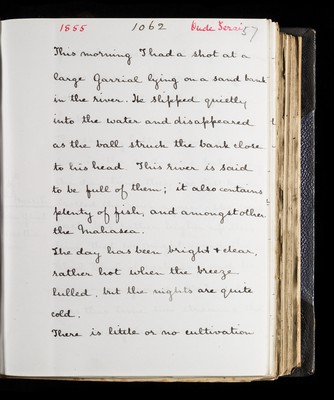 1885 1062 Oude Tersia 57
This morning I had a shot at a
large Garrial lying on a sand bank
in the river. He slipped quietly
into the water and disappeared
as the ball struck the bank close
to his head. This river is said
to be full of them; it also contains
plenty of fish, and amongst other
the Mahasea.
The day has been bright & clear,
rather hot when the breeze
lulled, but the nights are quite
cold.
There is little or no cultivation